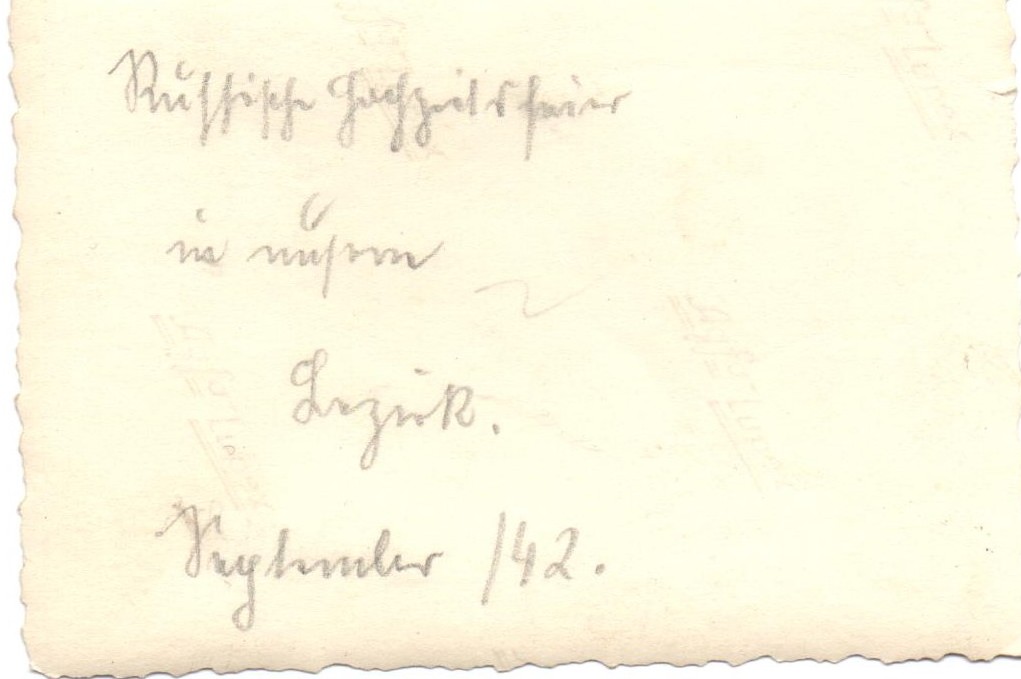 Russische Hochzeitsfeier
in unserm
Bezirk.
September /42.